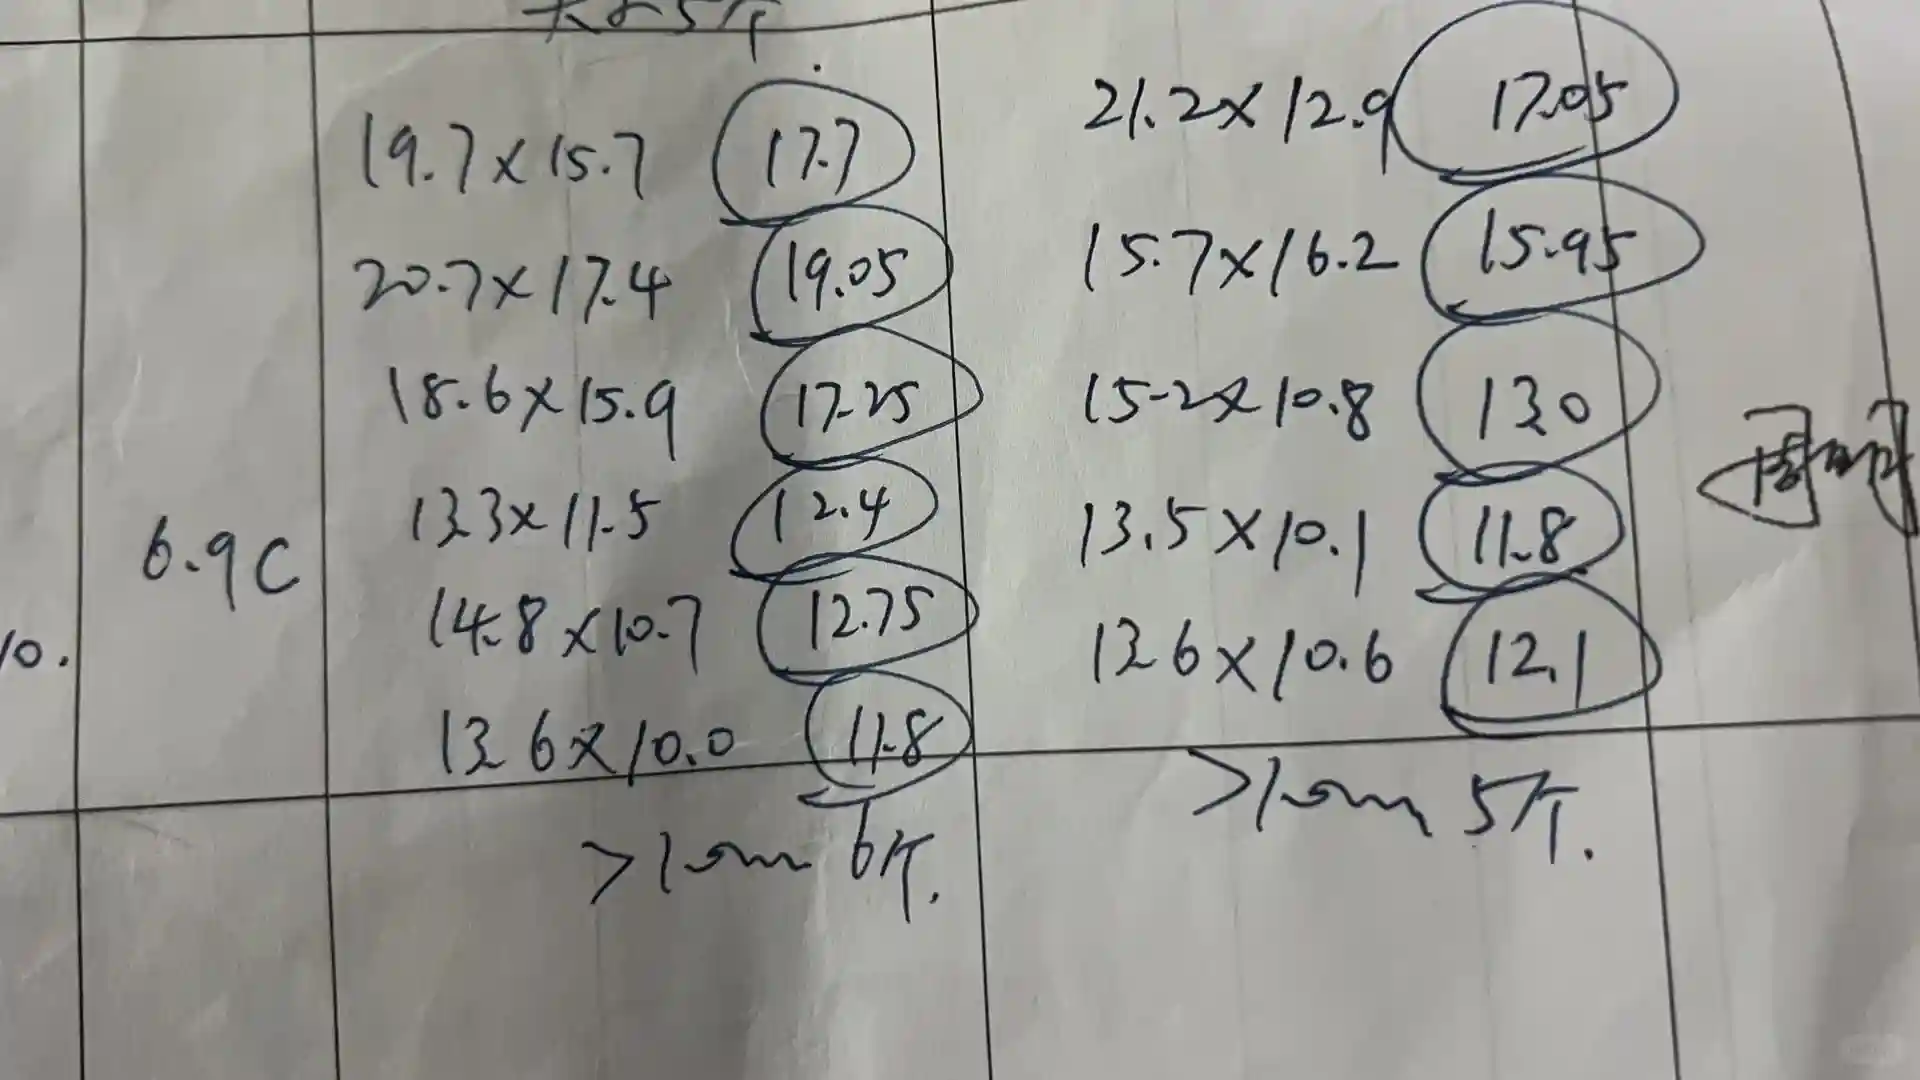 19.7×15.7 17.7
20.7×17.4 19.05
18.6×15.9 17.25
13.3×11.5 12.4
14.8×10.7 12.75
13.6×10.0 11.8
>10mm 6个.
6.9C
10.
21.2×12.9 17.05
15.7×16.2 15.95
15.2×10.8 13.0
13.5×10.1 11.8
13.6×10.6 12.1
>10mm 5个.